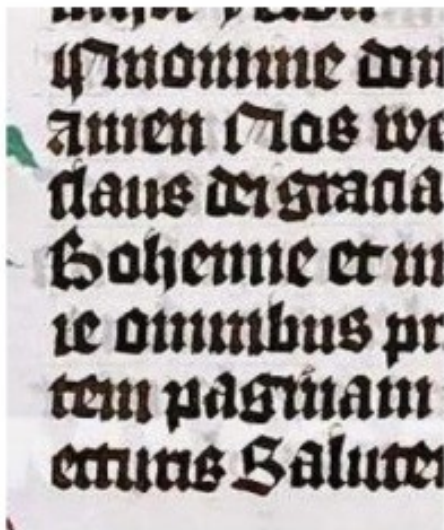 In nomine dom
amen Nos we
claus dei gracia
Bohemie et m
ie omnibus pr
tem paginam
ecturis Salute